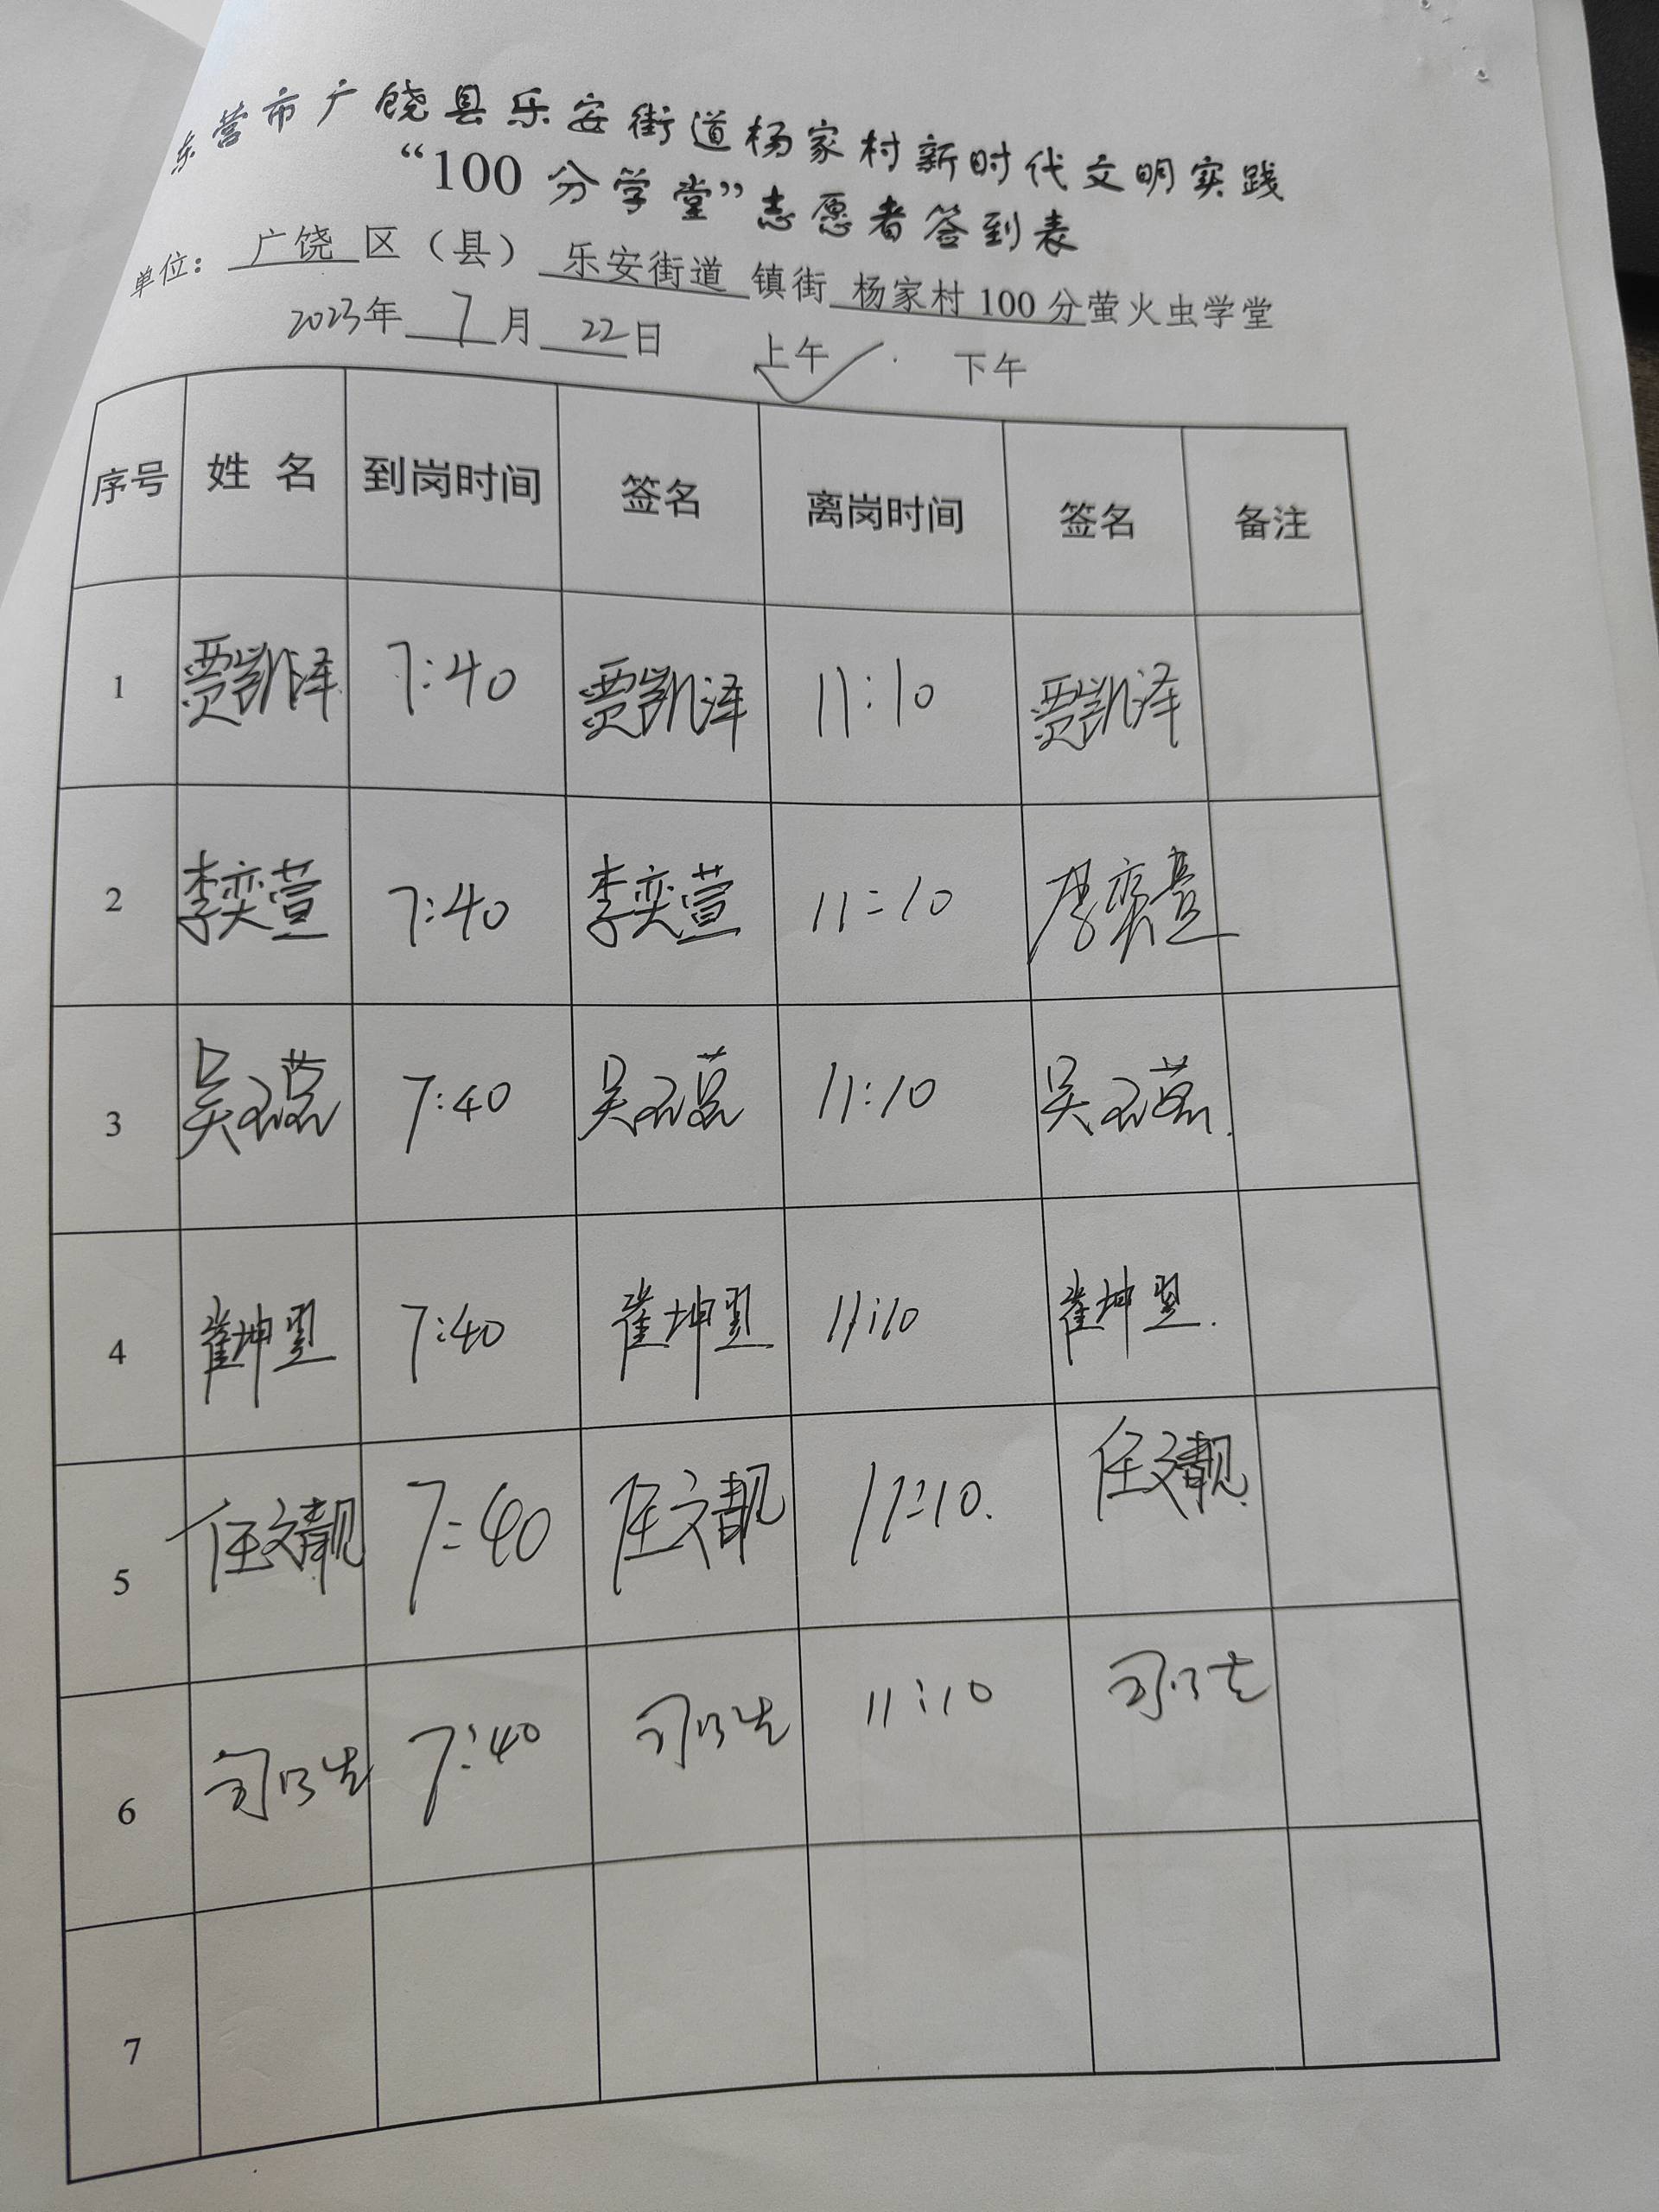 东营市广饶县乐安街道杨家村新时代文明实践
“100 分学堂”志愿者签到表
单位：广饶 区（县） 乐安街道 镇街 杨家村 100 分萤火虫学堂
2023年 7 月 22 日 上午 下午
序号 姓 名 到岗时间 签名 离岗时间 签名 备注
1 贾凯泽 7:40 贾凯泽 11:10 贾凯泽
2 李奕萱 7:40 李奕萱 11:10 李奕萱
3 吴 7:40 吴 11:10 吴
4 崔坤翌 7:40 崔坤翌 11:10 崔坤翌
5 任文靓 7:40 任文靓 11:10 任文靓
6 7:40 11:10
7